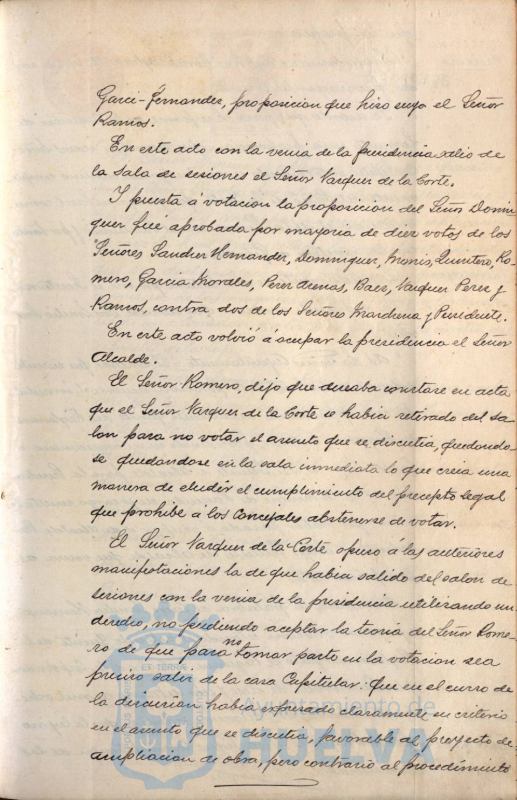 Garci-Fernandez, proposicion que hizo suya el Señor
Ramos.
En este acto con la venia de la presidencia salio de
la sala de sesiones el Señor Vazquez de la Corte.
Y puesta á votacion la proposicion del Señor Domin
guez fué aprobada por mayoria de diez votos de los
Señores Sanchez Hernandez, Dominguez, Quintero, Ro-
mero, Garcia Morales, Perez Arenas, Baez, Vazquez Perez y
Ramos, contra dos de los Señores Marchena y Presidente.
En este acto volvió á ocupar la presidencia el Señor
Alcalde.
El Señor Romero, dijo que deseaba constase en acta
que el Señor Vazquez de la Corte se habia retirado del sa-
lon para no votar el asunto que se discutia, quedando-
se quedandose en la sala inmediata lo que creia una
manera de eludir el cumplimiento del precepto legal
que prohibe á los concejales abstenerse de votar.
El Señor Vazquez de la Corte opuso á las anteriores
manifestaciones la de que habia salido del salon de
sesiones con la venia de la presidencia utilizando un
derecho, no pudiendo aceptar la teoria del Señor Rome-
ro de que para no tomar parte en la votacion sea
preciso salir de la casa Capitular: que en el curso de
la discusion habia expresado claramente su criterio
en el asunto que se discutia, favorable al proyecto de
ampliacion de obra, pero contrario al procedimiento
Ayuntamiento de
HUELVA